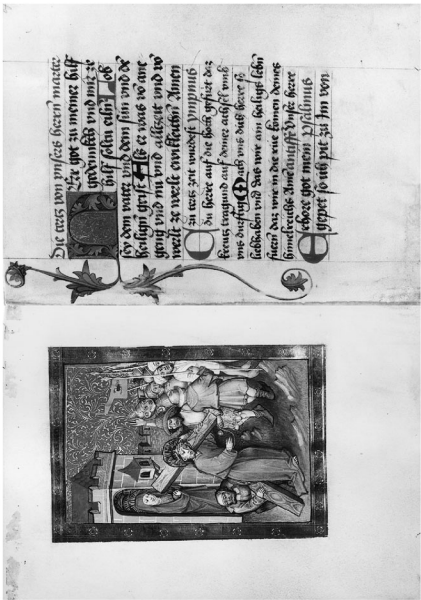 Die tertz von unsers herrn marter
Er got zu meiner hilf
gedenckh und mir ze
hilf soltu eiln Lob
sey dem vater und dem sun und de
heiligen geist Als er was vo ane
geng und nu und allzeit und vo
werlt ze werlt ewikleichn Amen
zu tertz zeit wurdest ympnus
du herre auf die hoch gefurt daz
kreutz tragund auf deiner achsel umb
uns durftig Mach uns dich herre so
liebhaben und das wir ain heiligs lebn
fuern daz wir in die rue kömen deines
himelreichs Amen antiff Unser herre
Erhore got mein Psalmus
gepet so ich pit zu im von